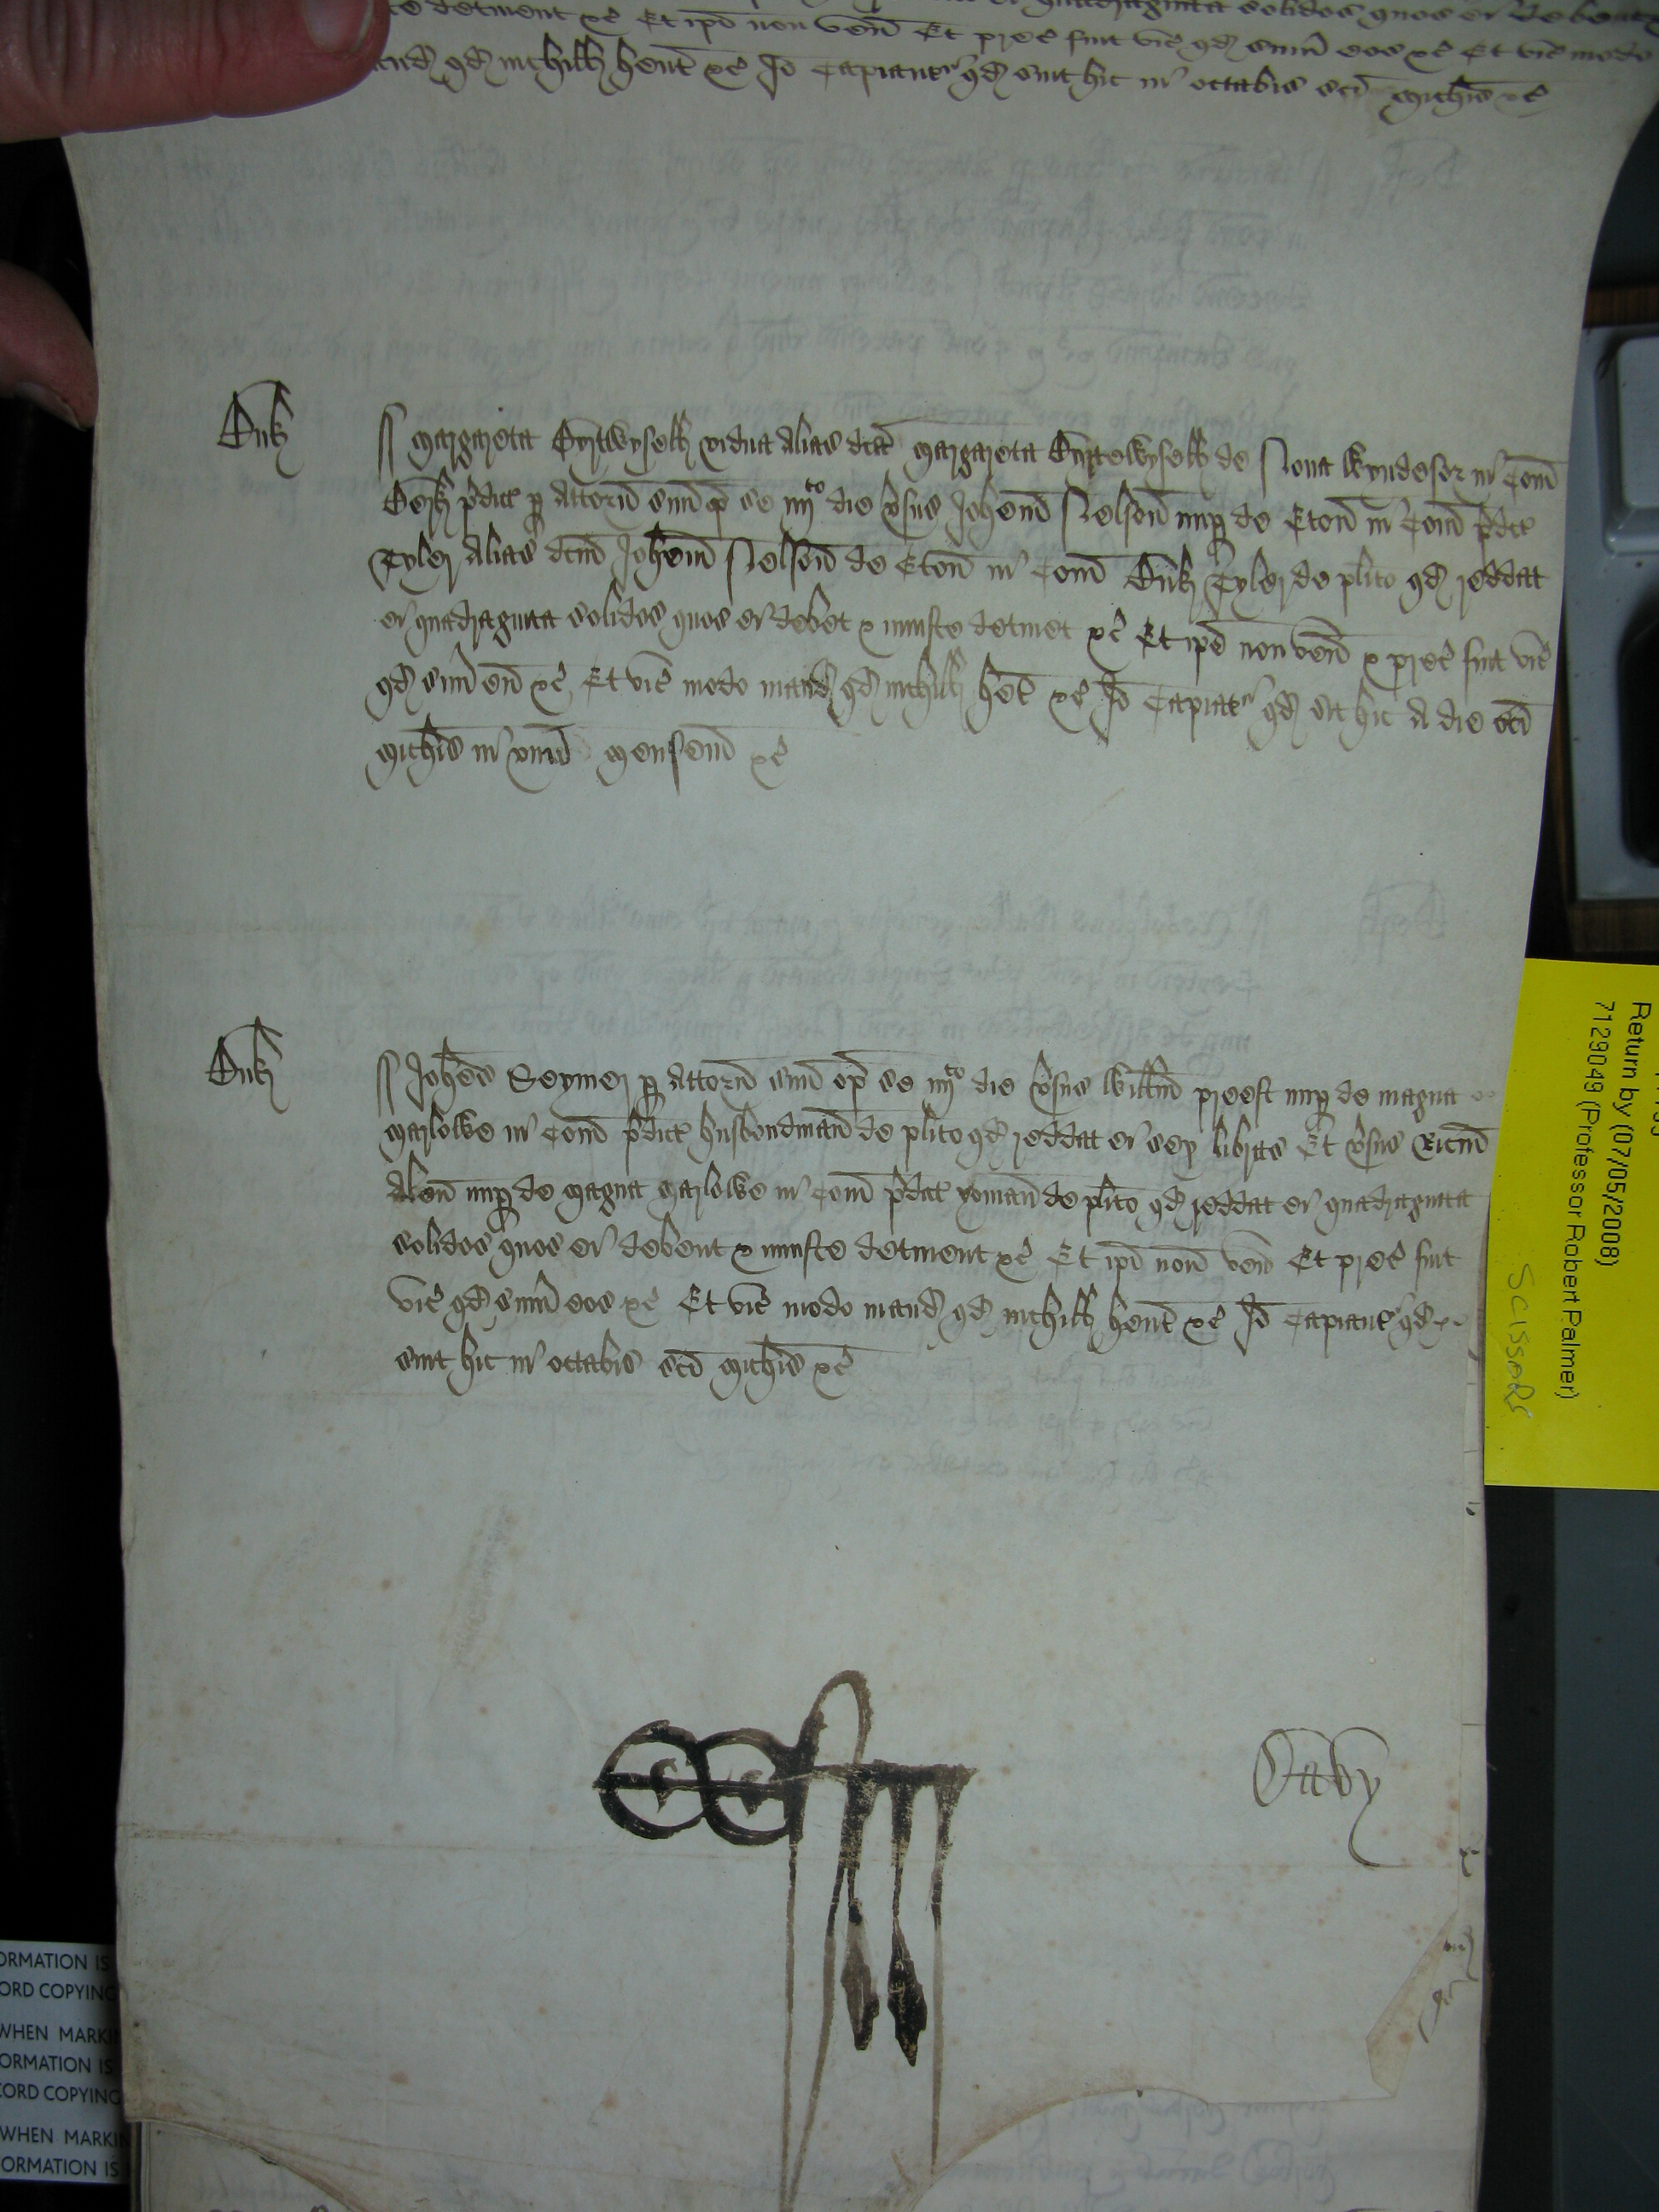 detinent &c Et ip̄i non ven̄ Et prec̄ fuit vic̄ qd sum̄ eos &c Et vic̄ modo
mand qd nichil hent &c Io Capiantr qd sint hic in octabis sci Mich̄is &c
Buk
Margareta Byrtwysell vidua alias dc̄a Margareta Byrtewysell de Nova Wyndesor in Com̄
Berk p̄dict p Attorn̄ suu op̄ se iiijto die v̄sus Joh̄em Nelson nup de Eton̄ in Com̄ p̄dco
Tyler alias dcm̄ Joh̄em Nelson de Eton̄ in Com̄ Buk Tyler de plito qd reddat
ei quadraginta solidos quos ei debet & iniuste detinet &c Et ip̄e non ven̄ & prec̄ fuit vic̄
qd sum̄ eu &c Et vic̄ modo mand qd nichil het &c Io Capiatr qd sit hic a die sci
Mich̄is in unu Mensem &c
Buk
Joh̄es Seymer p Attorn̄ suu op̄ se iiijto die v̄sus Will̄m preest nup de magna
Marlowe in Com̄ p̄dict husbondman̄ de plito qd reddat ei sex libras Et v̄sus Ric̄m
Alen̄ nup de Magna Marlowe in Com̄ p̄dict yoman̄ de plito qd reddat ei quadraginta
solidos quos ei debent & iniuste detinent &c Et ip̄i non ven̄ Et prec̄ fuit
vic̄ qd sum̄ eos &c Et vic̄ modo mand qd nichil hent &c Io Capiantr qd
sint hic in octabis sci Mich̄is &c
Return by (07/05/2008)
7129049 (Professor Robert Palmer)
SCISSORS
ORMATION IS
ORD COPYING
WHEN MARKI
ORMATION IS
CORD COPYING
WHEN MARKI
ORMATION IS